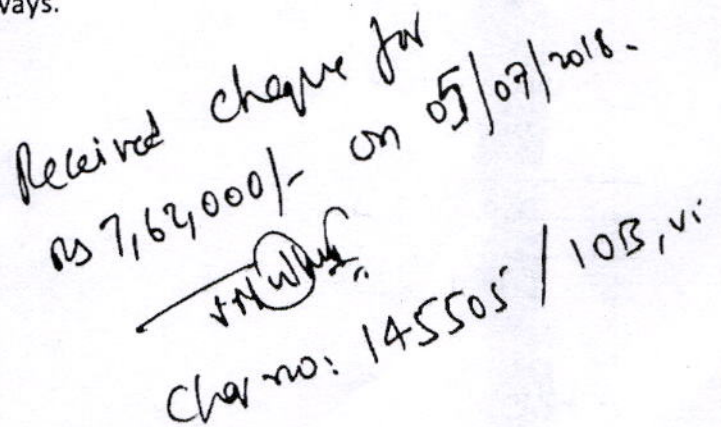 ways.
Received cheque for
Rs 7,62,000/- on 05/07/2018.
Chq no: 145505 / IOB, vi